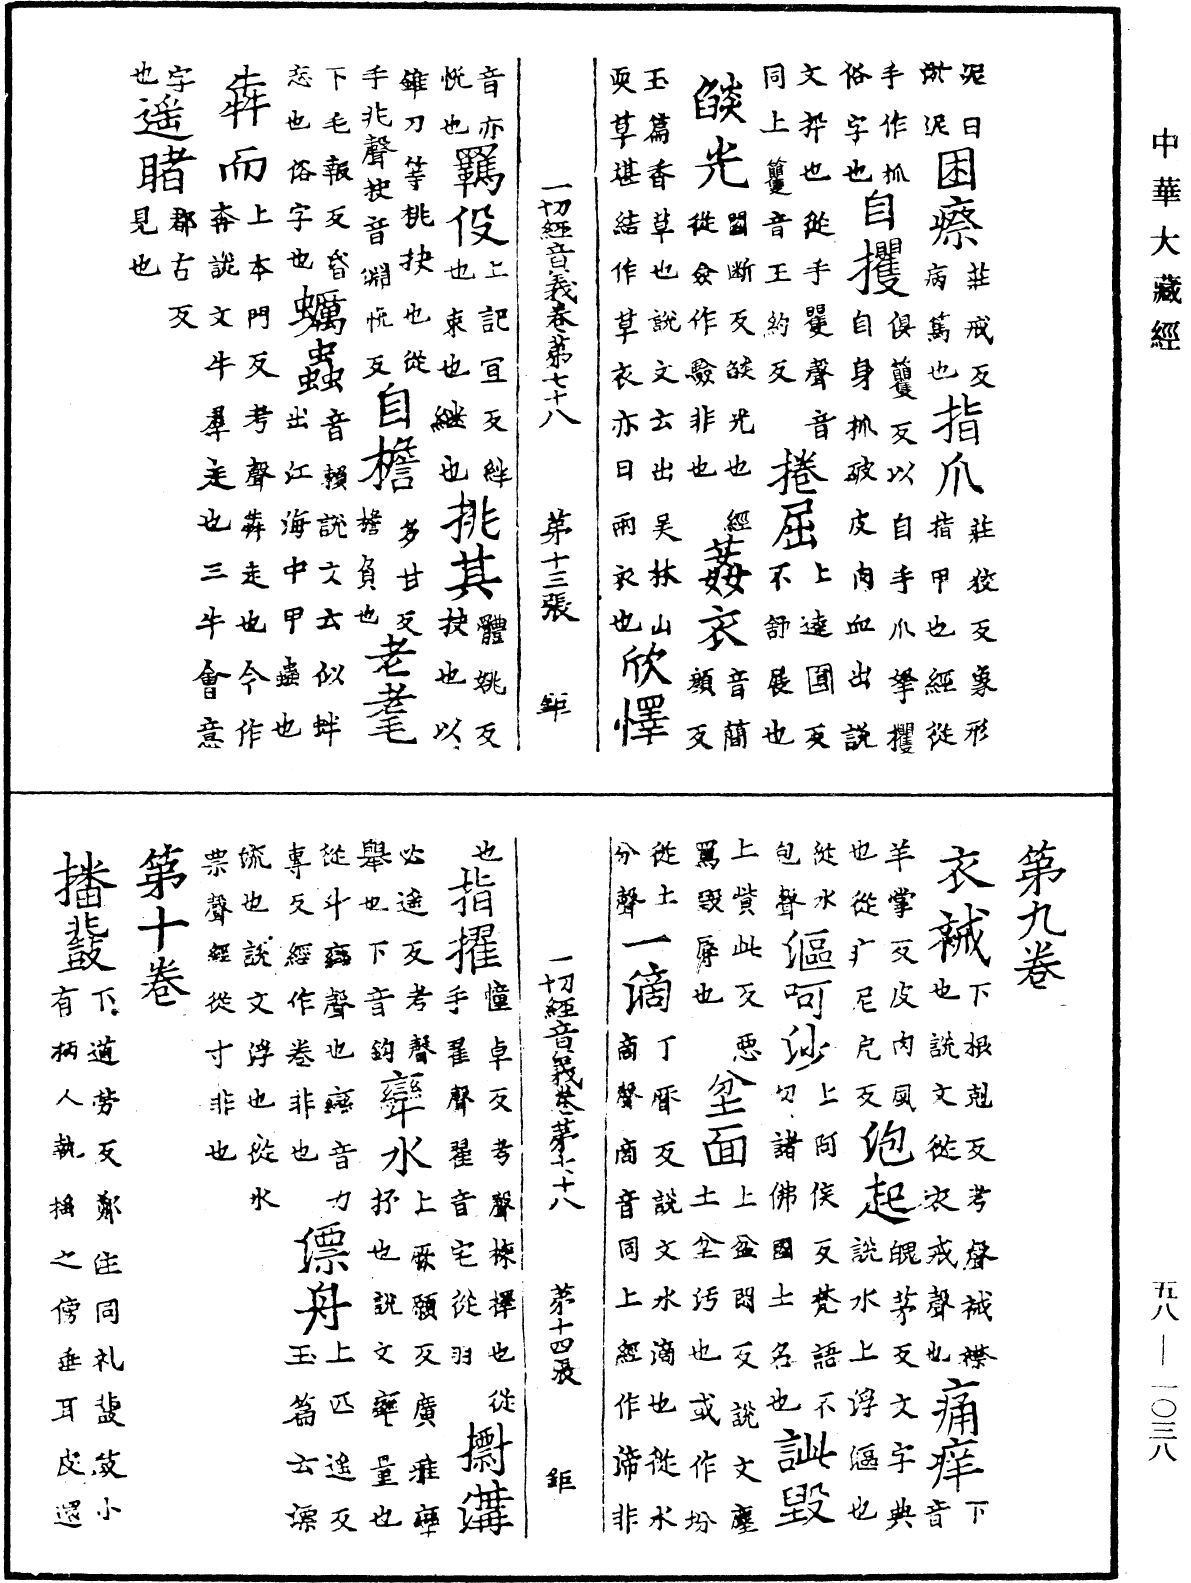 中華大藏經
泥日淤泥困瘵莊戒反病篤也指爪莊狡反象形指甲也經從
手作抓俗字也自攫俱籰反以自手爪拏攫自身抓破皮肉血出說
文㧌也從手矍聲音同上籰音王約反捲屈上逵圓反不舒展也
燄光閻斷反焰光也經從僉作驗非也葌衣音蕳顏反
玉篇香草也說文云出吳林山耎草堪結作草衣亦日雨衣也欣懌
一切經音義卷第七十八 第十三張 鉅
音亦悅也羈伇上記宜反絆也束也繼也挑其體姚反抉也以
錐刀等挑抉也從手兆聲抉音淵悅反自擔多甘反擔負也老耄
下毛報反昏忘也俗字也蠣蟲音賴說文云似蚌出江海中甲蟲也
犇而上本門反考聲犇走也今作奔說文牛羣走也三牛會意
字也遥睹郡古反見也
第九卷
衣裓下根剋反考聲裓襟也說文從衣戒聲也痛痒下音
羊掌反皮肉風也從疒尼戹反皰起䶌茅反文字典說水上浮漚也
從水包聲漚呵沙上阿侯反梵語不切諸佛國土名也訿毀
上貲此反惡罵毀辱也坌面上盆悶反說文塵土坌污也或作坋
從土分聲一滴丁曆反說文水滴也從水啇聲啇音同上經作渧非
一切經音義卷第七十八 第十四張 鉅
也指擢憧卓反考聲揀擇也從手翟聲翟音宅從羽溝
必遥反考聲舉也下音鈎㪻水上厥願反廣雅㪻抒也說文㪻量也
從斗䜌聲也䜌音力專反經作卷非也漂舟上匹遥反玉篇云漂
流也說文浮也從水票聲經從寸非也
第十卷
播鼗下道勞反鄭注同礼鼗鼓小有柄人執搖之傍垂耳皮還
五八—一〇三八